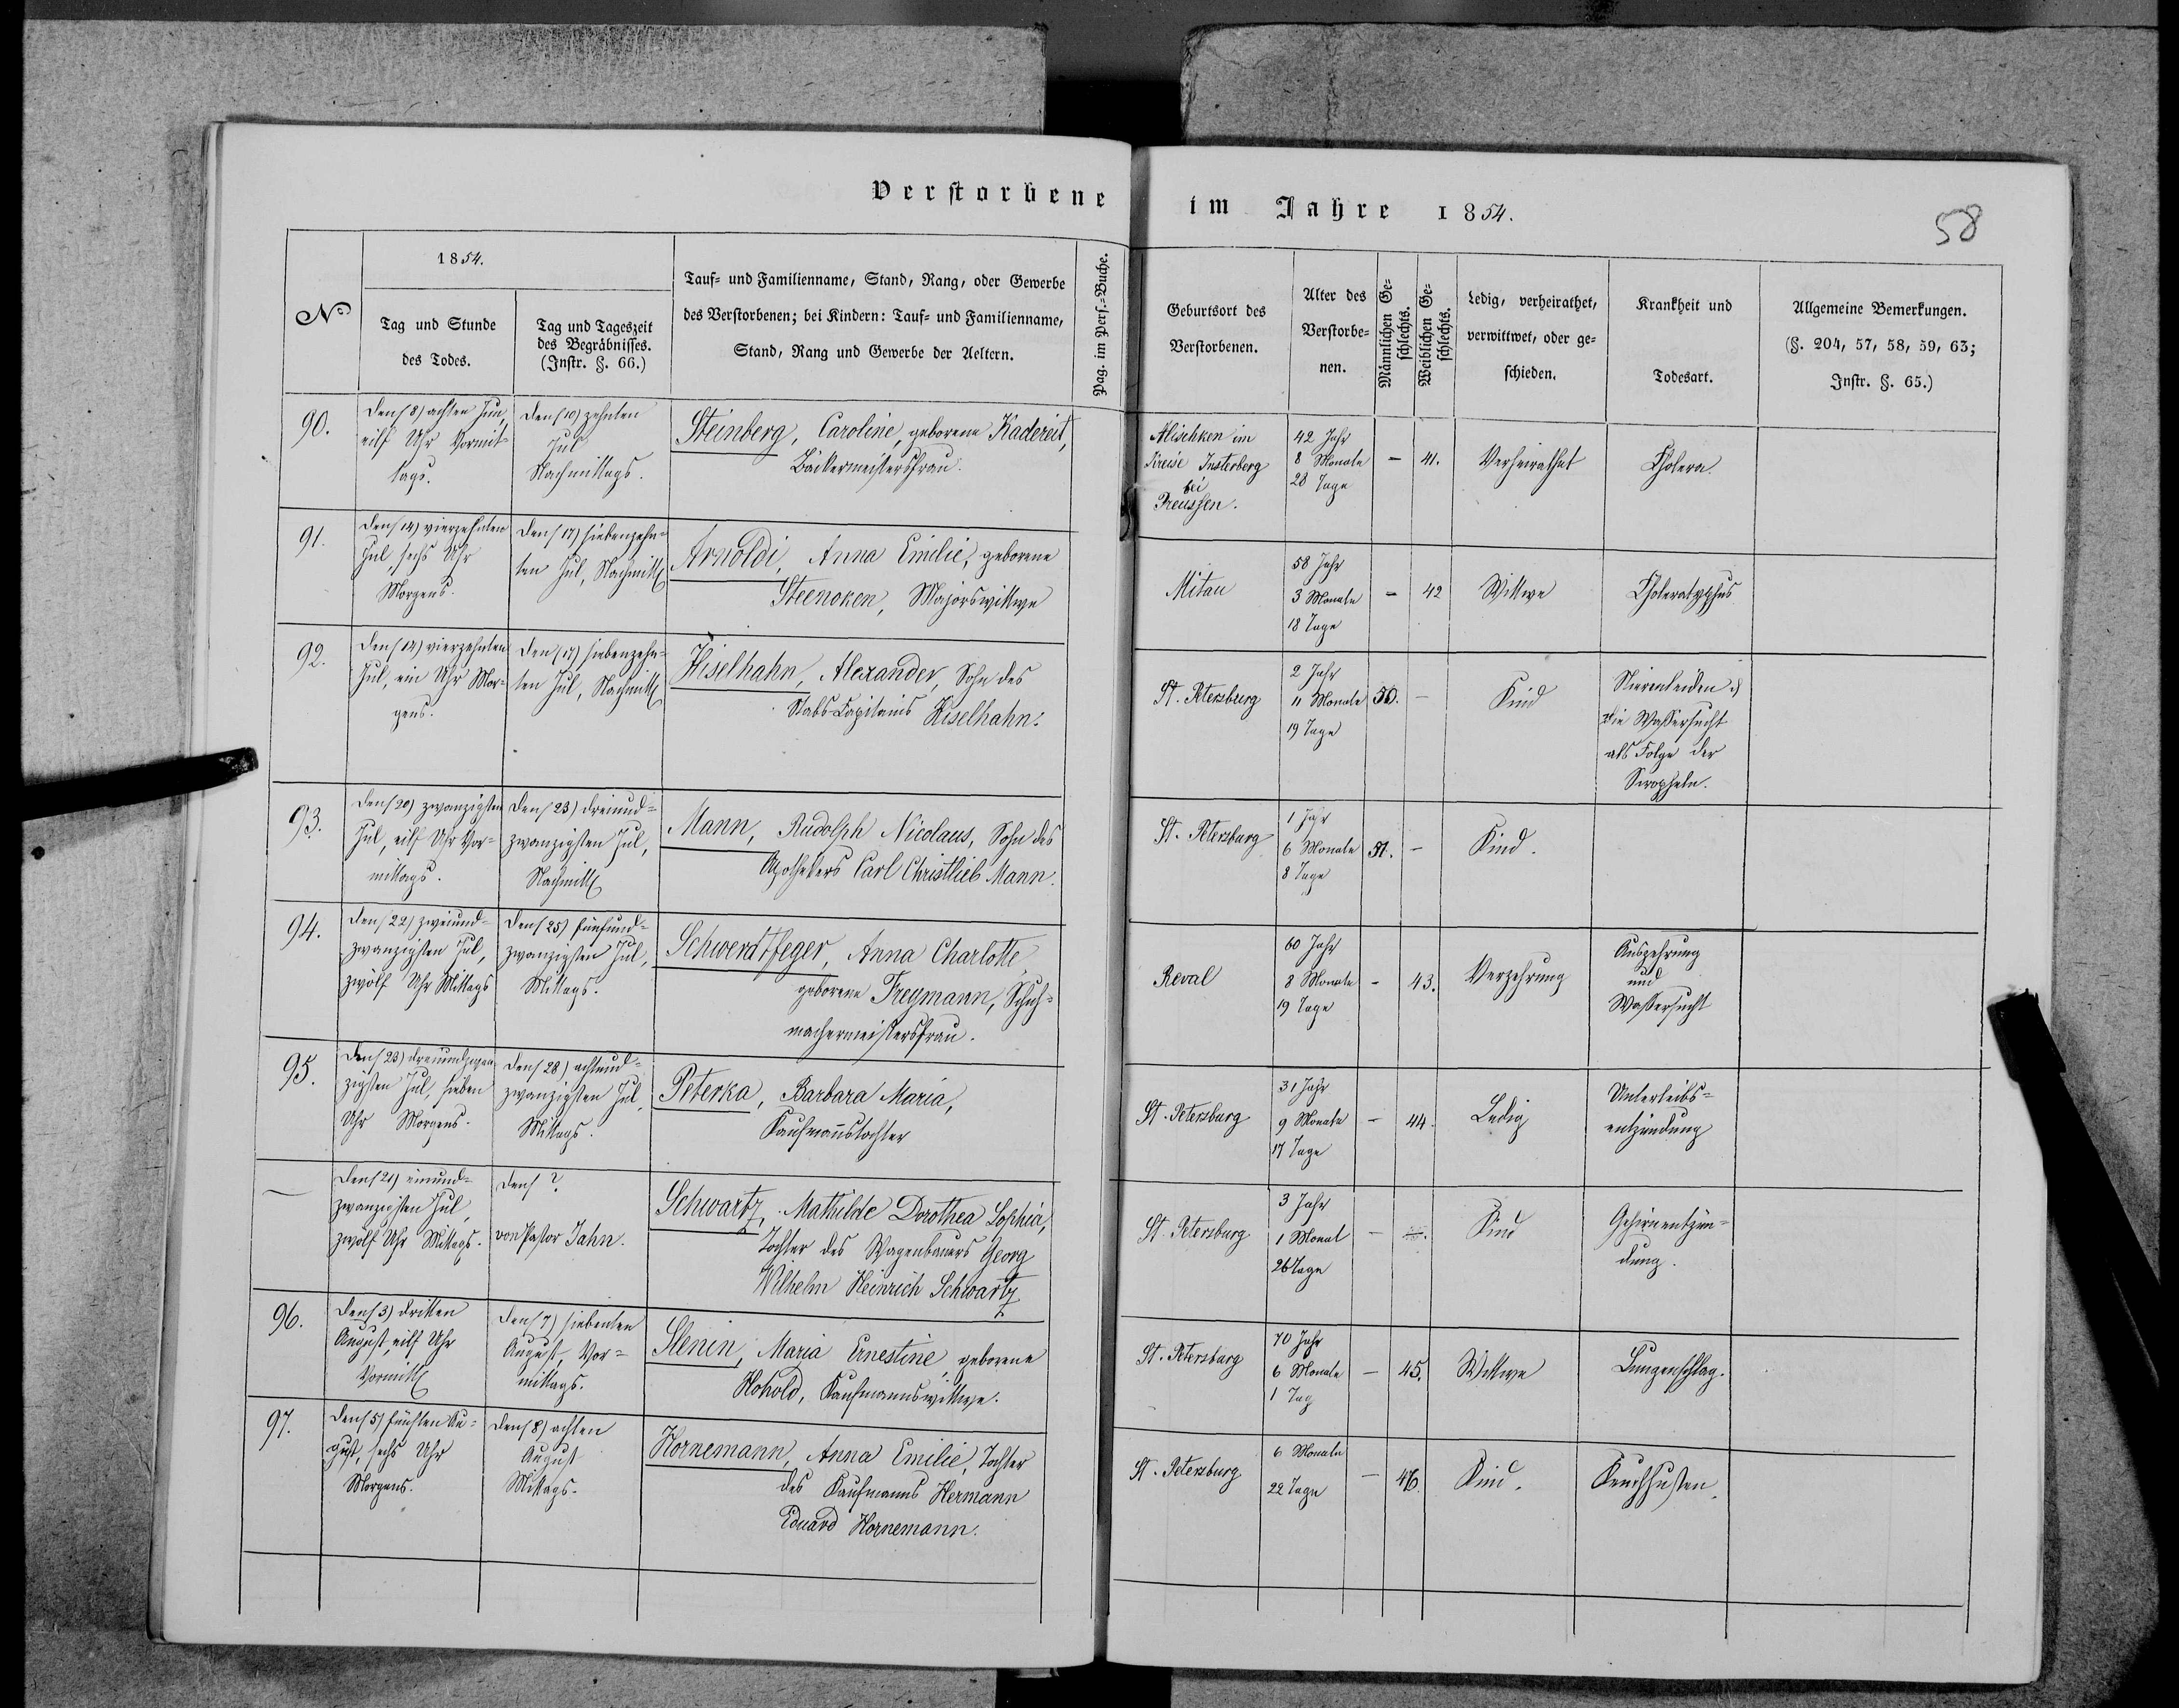 Verstorbene im Jahre 1854.
58
1854.
No
Tag und Stunde
des Todes.
Tag und Tageszeit
des Begräbnisses.
(Instr. §. 66.)
Tauf- und Familienname, Stand, Rang, oder Gewerbe
des Verstorbenen; bei Kindern: Tauf- und Familienname,
Stand, Rang und Gewerbe der Aeltern.
Pag. im Pers.-Buche.
Geburtsort des
Verstorbenen.
Alter des
Verstorbe-
nen.
Männlichen Ge-
schlechts.
Weiblichen Ge-
schlechts.
Ledig, verheirathet,
verwittwet, oder ge-
schieden.
Krankheit und
Todesart.
Allgemeine Bemerkungen.
(§. 204, 57, 58, 59, 63;
Instr. §. 65.)
90.
Den (8) achten Jun,
eilf Uhr Vormit-
tags.
Den (10) zehnten
Jul
Nachmittags.
Steinberg, Caroline, geborene Kadereit,
Bäckermeistersfrau.
Alischken im
Kreise Insterberg
bei
Preussen.
42 Jahr
8 Monate
28 Tage
-
41.
Verheirathet
Cholera.
91.
Den (14) vierzehnten
Jul, sechs Uhr
Morgens.
Den (17) siebenzehn-
ten Jul, Nachmitt
Arnoldi, Anna Emilie, geborene
Steenoken, Majorswittwe
Mitau
58 Jahr
3 Monate
18 Tage
-
42
Wittwe
Choleratyphus
92.
Den (14) vierzehnten
Jul, ein Uhr Mor-
gens.
Den (17) siebenzehn-
ten Jul, Nachmitt
Kiselhahn, Alexander, Sohn des
Stabs-Capitains Kiselhahn.
St. Petersburg
2 Jahr
11 Monate
19 Tage
50.
-
Kind
Nierenleiden u
die Wassersucht
als Folge der
Scropheln.
93.
Den (20) zwanzigsten
Jul, eilf Uhr Vor-
mittags.
Den (23) dreiund-
zwanzigsten Jul,
Nachmitt
Mann, Rudolph Nicolaus, Sohn des
Apothekers Carl Christlieb Mann.
St. Petersburg
1 Jahr
6 Monate
8 Tage
51.
-
Kind.
94.
Den (22) zweiund-
zwanzigsten Jul,
zwölf Uhr Mittags
Den (25) fünfund-
zwanzigsten Jul,
Mittags.
Schwerdtfeger, Anna Charlotte,
geborene Freymann, Schuh-
machermeistersfrau.
Reval
60 Jahr
8 Monate
19 Tage
-
43.
Verzehrung
Auszehrung
und
Wassersucht
95.
Den (23) dreiundzwan
zigsten Jul, sieben
Uhr Morgens.
Den (28) achtund-
zwanzigsten Jul,
Mittags.
Peterka, Barbara Maria,
Kaufmannstochter
St. Petersburg
31 Jahr
9 Monate
17 Tage
-
44.
Ledig
Unterleibs-
entzündung
—
Den (21) einund-
zwanzigsten Jul,
zwölf Uhr Mittags.
Den ?
von Pastor Jahn.
Schwartz, Mathilde Dorothea Sophia,
Tochter des Wagenbauers Georg
Wilhelm Heinrich Schwartz
St. Petersburg
3 Jahr
1 Monat
26 Tage
-
Kind
Gehirnentzün-
dung.
96.
Den (3) dritten
August, eilf Uhr
Vormitt
Den (7) siebenten
August, Vor-
mittags.
Slenin, Maria Ernestine geborene
Hohold, Kaufmannswittwe.
St. Petersburg
70 Jahr
6 Monate
1 Tag
-
45.
Wittwe
Lungenschlag.
97.
Den (5) fünften Au-
gust, sechs Uhr
Morgens.
Den (8) achten
August
Mittags.
Hornemann, Anna Emilie, Tochter
des Kaufmanns Hermann
Eduard Hornemann.
St. Petersburg
6 Monate
22 Tage
-
46.
Kind.
Keuchhusten.